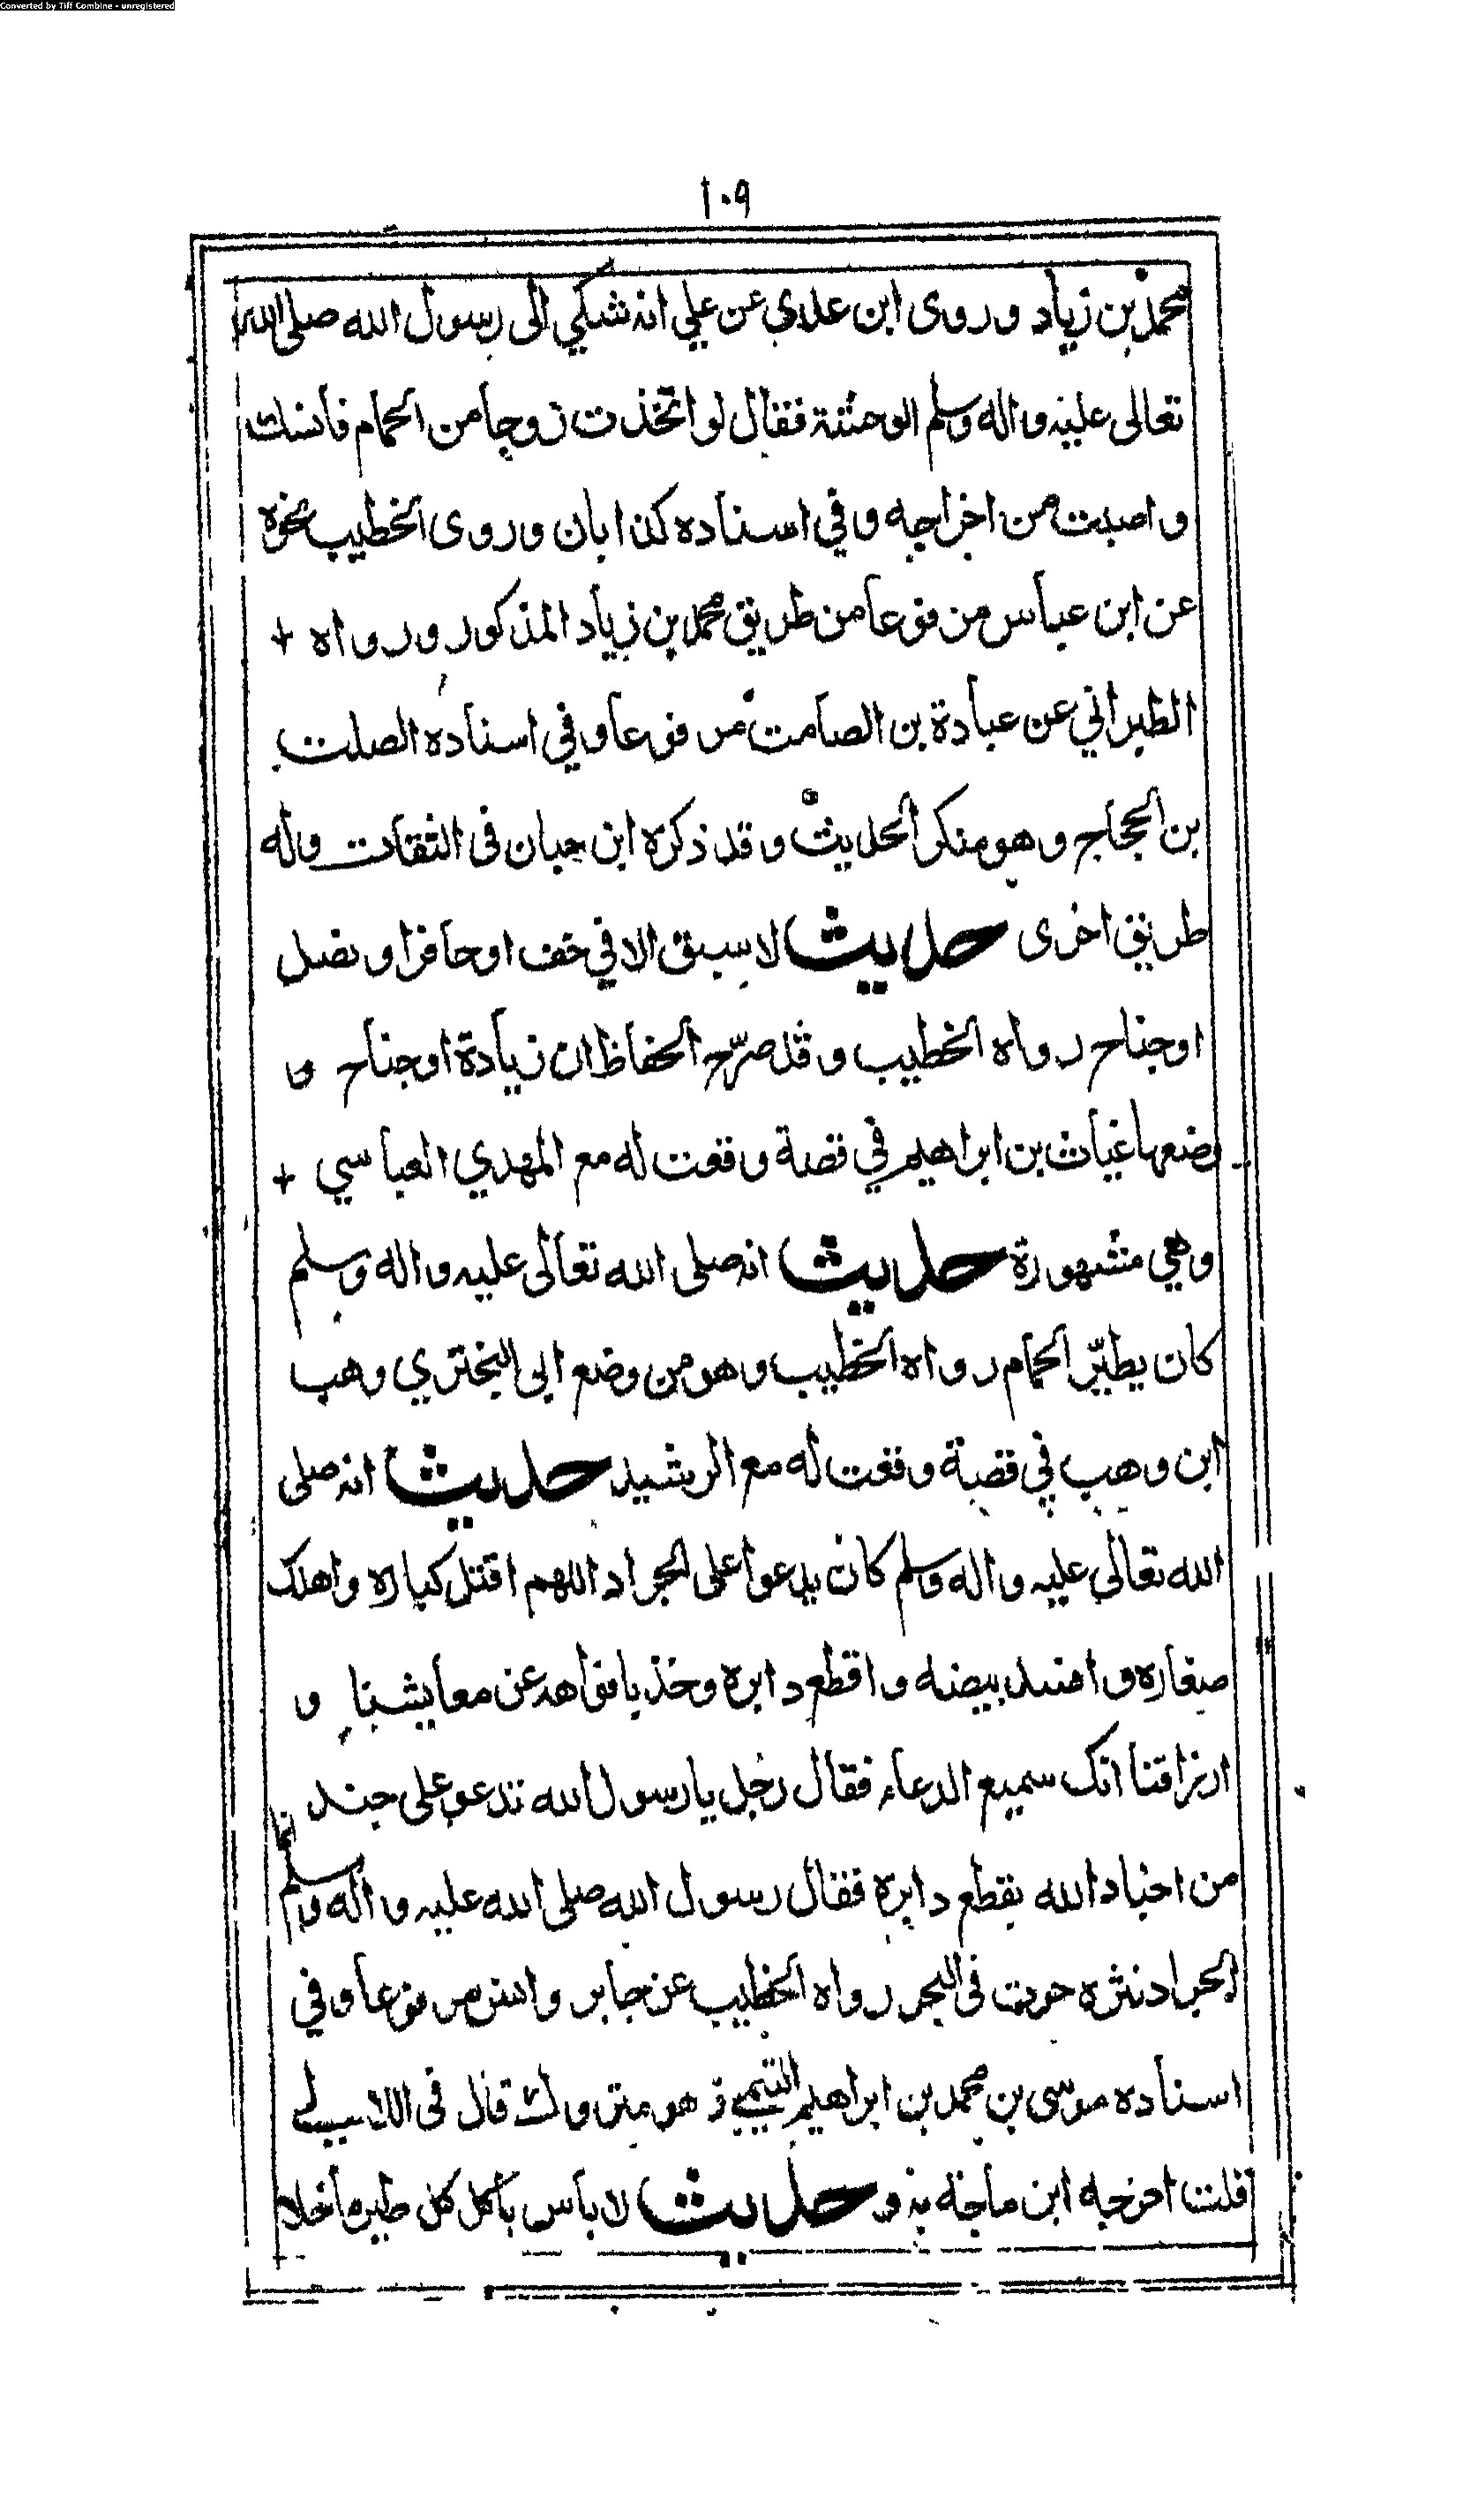 Converted by Tiff Combine - unregistered
١٠٩
محمد بن زياد وروى ابن عدي عن علي انه شكي الى رسول الله صلى الله
تعالى عليه واله وسلم الوحشة فقال لو اتخذت زوجا من الحمام فانسك
واصبت من اخراجه وفي اسناده كذابان وروى الخطيب نحوه
عن ابن عباس مرفوعا من طريق محمد بن زياد المذكور ورواه +
الطبراني عن عبادة بن الصامت مرفوعا وفي اسناده الصلت
بن الحجاج وهو منكر الحديث وقد ذكره ابن حبان فى الثقات وله
طريق اخرى حديث لا سبق الا في خف او حافر او نصل
او جناح رواه الخطيب وقد صرّح الحفاظ ان زيادة او جناح و
ضعها غياث بن ابراهيم في قصة وقعت له مع المهدي العباسي +
وهي مشهورة حديث انه صلى الله تعالى عليه واله وسلم
كان يطيّر الحمام رواه الخطيب وهو من وضع ابى البختري وهب
ابن وهب في قصة وقعت له مع الرشيد حديث انه صلى
الله تعالى عليه واله وسلم كان يدعوا على الجراد اللهم اقتل كباره واهلك
صغاره وافسد بيضه واقطع دابره وخذ بافواهه عن معايشنا و
ارزاقنا انك سميع الدعاء فقال رجل يا رسول الله تدعو على جند
من اجناد الله بقطع دابره فقال رسول الله صلى الله عليه واله وسلم انما
الجراد نثره حوت فى البحر رواه الخطيب عن جابر وانس مرفوعا وفي
اسناده موسى بن محمد بن ابراهيم التيمي وهو متروك قال فى اللالي
قلت اخرجه ابن ماجة حديث لا باس باكل كل طير ما خلا